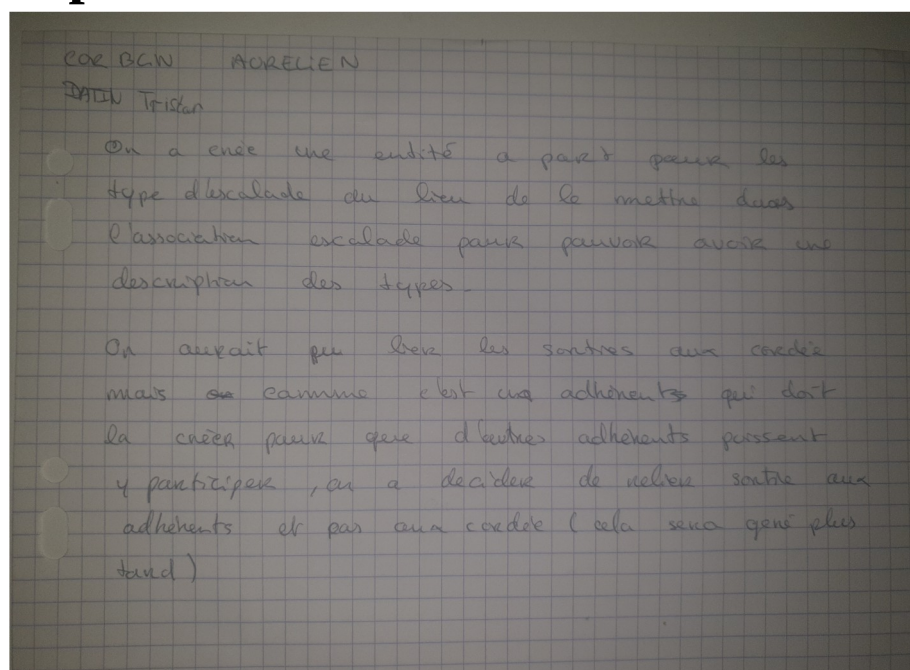 AURELIEN
DATIN Tristan
On a créé une entité a part pour les
type d'escalade au lieu de le mettre dans
l'association escalade pour pouvoir avoir une
description des types.
On aurait pu lier les sorties aux cordée
mais comme c'est un adhérents qui doit
la créer pour que d'autres adhérents puissent
y participer, on a decider de relier sortie aux
adhérents et pas aux cordée (cela sera géré plus
tard)